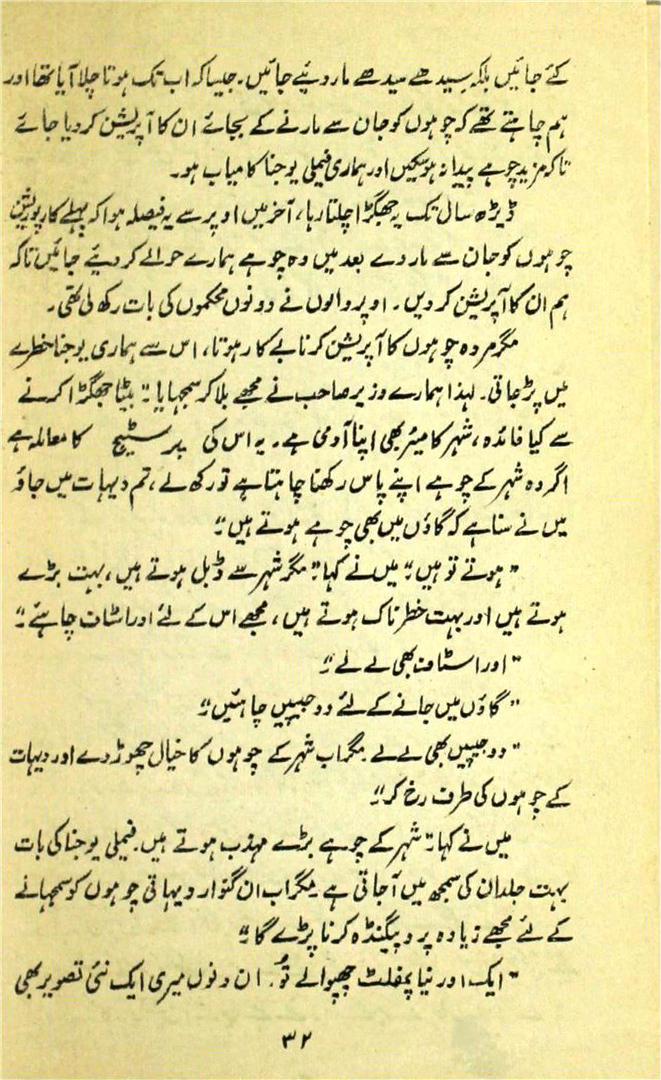 کئے جائیں بلکہ سیدھے سیدھے مار دیئے جائیں۔ جیسا کہ اب تک ہوتا چلا آیا تھا اور
ہم چاہتے تھے کہ چوہوں کو جان سے مارنے کے بجائے ان کا آپریشن کر دیا جائے
تاکہ مزید چوہے پیدا نہ ہوسکیں اور ہماری فیملی یوجنا کامیاب ہو۔
ڈیڑھ سال تک یہ جھگڑا چلتا رہا، آخر میں اوپر سے یہ فیصلہ ہوا کہ پہلے کارپوریشن
چوہوں کو جان سے مار دے بعد میں وہ چوہے ہمارے حوالے کر دیئے جائیں تاکہ
ہم ان کا آپریشن کر دیں۔ اوپر والوں نے دونوں محکموں کی بات رکھ لی تھی۔
مگر مردہ چوہوں کا آپریشن کرنا بے کار ہوتا، اس سے ہماری یوجنا خطرے
میں پڑ جاتی۔ لہٰذا ہمارے وزیر صاحب نے مجھے بلا کر سمجھایا "بیٹا جھگڑا کرنے
سے کیا فائدہ، شہر کا میئر بھی اپنا آدمی ہے۔ یہ اس کی پرسٹیج کا معاملہ ہے
اگر وہ شہر کے چوہے اپنے پاس رکھنا چاہتا ہے تو رکھ لے، تم دیہات میں جاؤ
میں نے سنا ہے کہ گاؤں میں بھی چوہے ہوتے ہیں"
"ہوتے تو ہیں" میں نے کہا "مگر شہر سے ڈبل ہوتے ہیں، بہت بڑے
ہوتے ہیں اور بہت خطرناک ہوتے ہیں، مجھے اس کے لئے اور اسٹاف چاہئے"
"اور اسٹاف بھی لے لے"
"گاؤں میں جانے کے لئے دو جیپیں چاہئیں"
"دو جیپیں بھی لے لے مگر اب شہر کے چوہوں کا خیال چھوڑ دے اور دیہات
کے چوہوں کی طرف رخ کر"
میں نے کہا "شہر کے چوہے بڑے مہذب ہوتے ہیں۔ فیملی یوجنا کی بات
بہت جلد ان کی سمجھ میں آ جاتی ہے۔ مگر اب ان گنوار دیہاتی چوہوں کو سمجھانے
کے لئے مجھے زیادہ پروپیگنڈہ کرنا پڑے گا"
"ایک اور نیا پمفلٹ چھپوالے تُو۔ ان دنوں میری ایک نئی تصویر بھی
۳۲